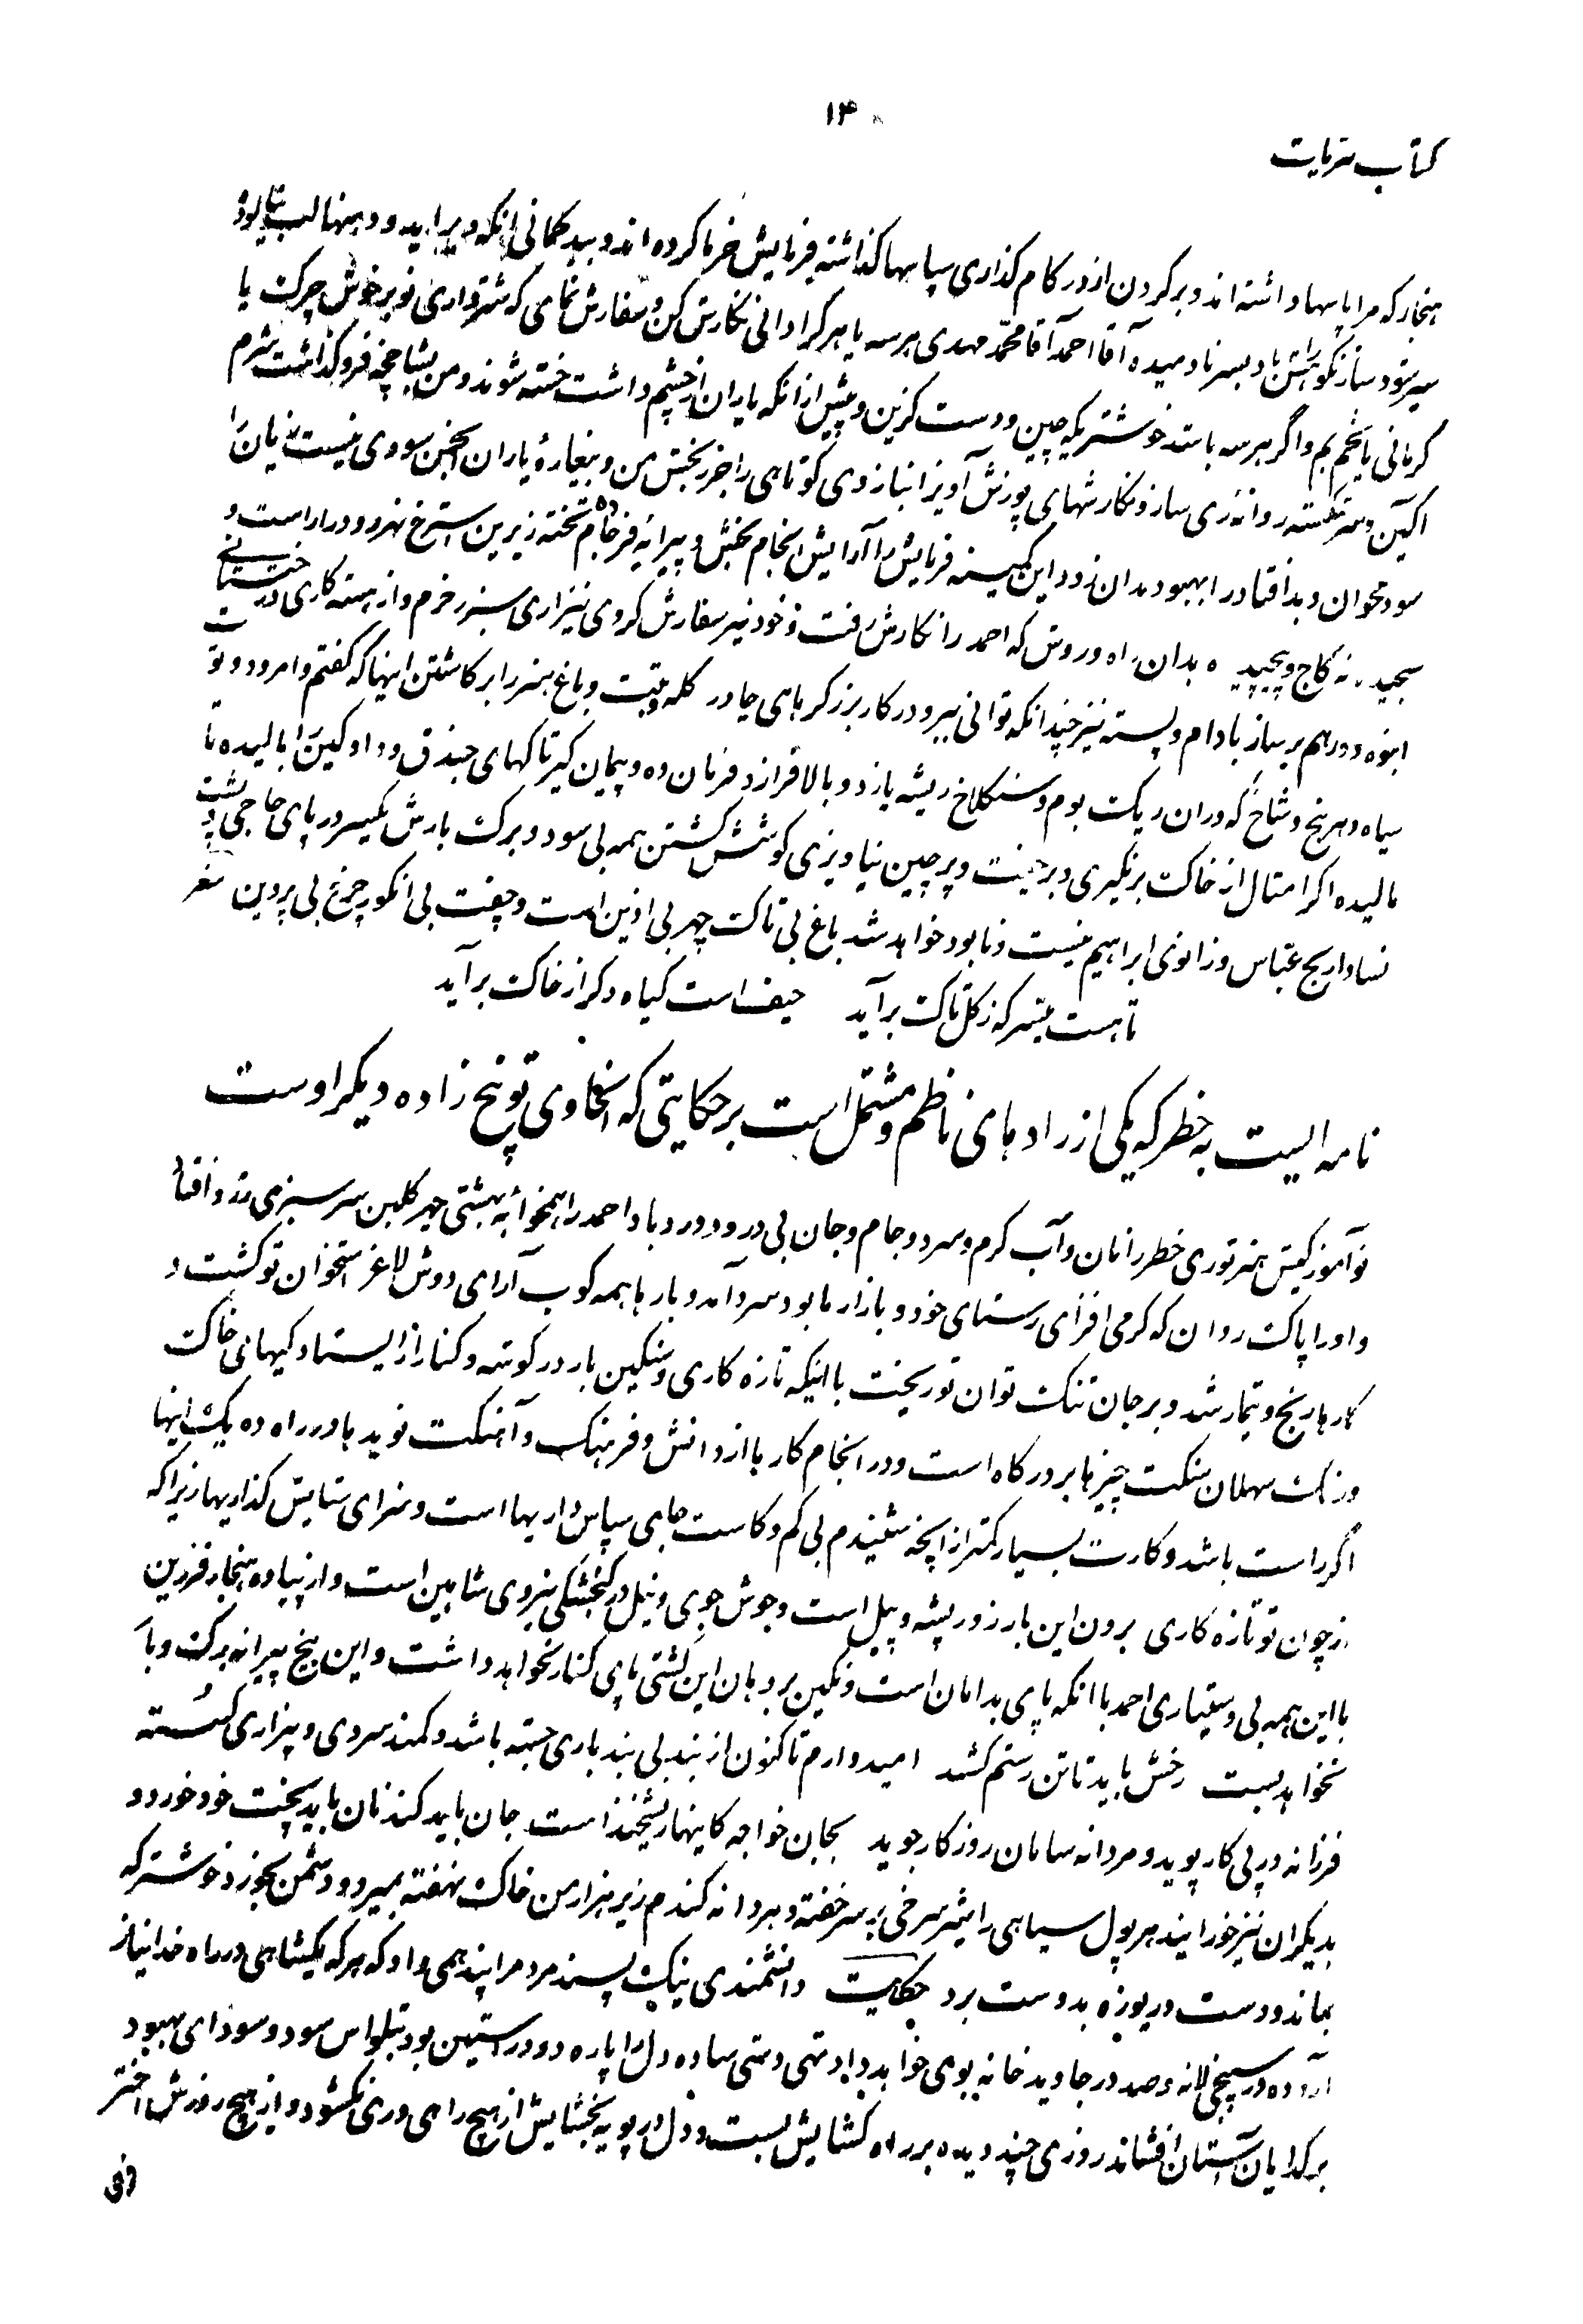 ۱۴
کتاب نثریات
هنجار که مرا پاسها داشته اند و بر کردن از در کام گذاری سپاسها گذاشته فرمایش خرما کرده اند و بید کمانی انکه دیر اید و
سازنکوهش باد بسر نا دمیده آقا احمد آقا محمد مهدی هر سه یا هر کرا دانی نکارش کن و سفارش نمای که شتر واری نو بر خوش چرک یا
کرمانی یا خم بم و اگر هر سه باشد خوشتر یکه چین و دست کزین و پیش از انکه یاران از چشم داشت خسته شوند و من فرو گذاشت شرم
اکین و سر شکسته روانه ری ساز و نکارشهای پوزش آویز انباز وی کوتاهی را جز رنجش من و بیغاره یاران انجمن سودی نیست زیان را
سود مخوان و بد افتاد را بهبود مدان زود این کمینه فرمایش را آرایش انجام بخش و پیرایه فرجام ده تخته زیرین استرخ نهرود را راست و
نه کاج و پیچید ه بدان راه و روش که احمد را نکارش رفت و خود نیز سفارش کردی نیزاری سبز و خرم و از هسته کاری درختستانی
انبوه و در هم بر ساز بادام و پسته نیز چندانکه توانی ببر و در کار برزکر های چادر کله و باغ هنر را بر کاشتن اینها که گفتم و امرود و توت
سیاه و هر بیخ و شاخ که دران ریک بوم و سنکلاخ ریشه یازد و بالا فرازد فرمان ده و پیمان گیر تاکهای و داوکین را بالیده تا
مالیده اکر امسال از خاک برنگیری و بر چفت و پرچین نیاویزی کوشش کشتن همه بی سود و برک بارش یکسر در پای حاجی و پشت
عباس و زانوی ابراهیم نیست و نابود خواهد شد باغ بی تاک چهر بی اذین است و چفت بی انکور چرخ بی پروین شعر
تا هست میسر که ز کل تاک بر آید حیف است کیاه دکر از خاک بر آید
نامه الیست به خطر که یکی از زاد های ناظم و مشتمل است بر حکایتی که انهم حاوی توبیخ زاده دیگر اوست
نوآموز کیش هنر توری خطر را نان و آب کرم و سرد و جام و جان بی درد و درد باد احمد را همخوابه بهشتی چهر کلبن سر سبزی رزد و افتاد
و اورا پاک روان که کرمی افزای رستهای خود و بازار ما بود سرد آمد و بار ها همه کوب آرای دوش لاغر استخوان تو کشت و
کارها رنج و تیمار شد و بر جان تنک توان تو ریخت با اینکه تازه کاری و سنکین بار در کوشه و کنار از ایستاد کیهای خاک
سهلان سنک چیزها بر در کاه است و در انجام کار با از دانش و فرهنک و آهنکت نوید ها در راه ده یک اینها
اگر راست باشد و کارت بسیار کمتر از انچه شنیدم بی کم و کاست جای سپاس داریها است و سزای ستایش گذاریها زیرا که
از چون تو تازه کاری بردن این بار زور پشه و پیل است و جوش جوی و نیل در کنجشکی نیروی شاهین است و از پیاده هنجار فرزین
با این همه بی دستیاری احمد با انکه پای بدامان است و نکین بر دهان این کشتی پای کنار نخواهد داشت و این بیخ پیرانه برک و بار
نخواهد بست رخش باید تا تن رستم کشد امیدوارم تا کنون از بند بی بند باری جسته باشد و کمند سردی و بیزاری کسسته
فرزانه در پی کار پوید و مردانه سامان روز کار جوید بجان خواجه کاینها ریشخند است جان باید کند نان باید پخت خود خورد و
بدیکران نیز خورانید هر پول سیاهی را شیر سرخی بر سر خفته و هر دانه کندم زیر هزار من خاک نهفته بمیرد و دشمن بخورد خوشتر که
بماند و دست دریوزه بدوست برد حکایت دانشمندی نیک پسند مردم را پند همی داد که هر که یکشاهی در راه خدا نیاز
آرد ده در سپنجی لانه و صد در جاوید خانه بوی خواهد داد تهی دستی ساده دل را پاره دو در آستین بود بتلواس سود و سودای بهبود
بر کدایان آستان افشاند روزی چند دیده بر راه کشایش بست و دل در پویه بخشایش از هیچ راهی دری نکشود و از هیچ روزنش اختر